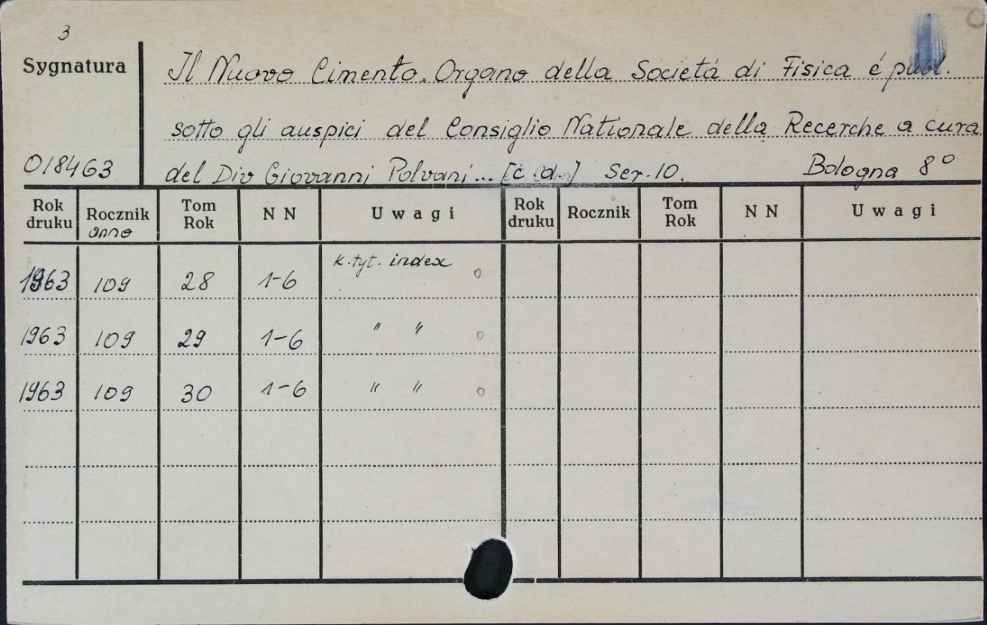 3
Sygnatura
Il Nuovo Cimento. Organo della Societá di Fisica é publ.
sotto gli auspici del Consiglio Nationale della Recerche a cura
018463 del Div Giovanni Polvani... [c.d.] Ser. 10. Bologna 8°
Rok druku Rocznik anno Tom Rok N N Uwagi Rok druku Rocznik Tom Rok N N Uwagi
1963 109 28 1-6 k.tyt. index o
1963 109 29 1-6 " " o
1963 109 30 1-6 " " o